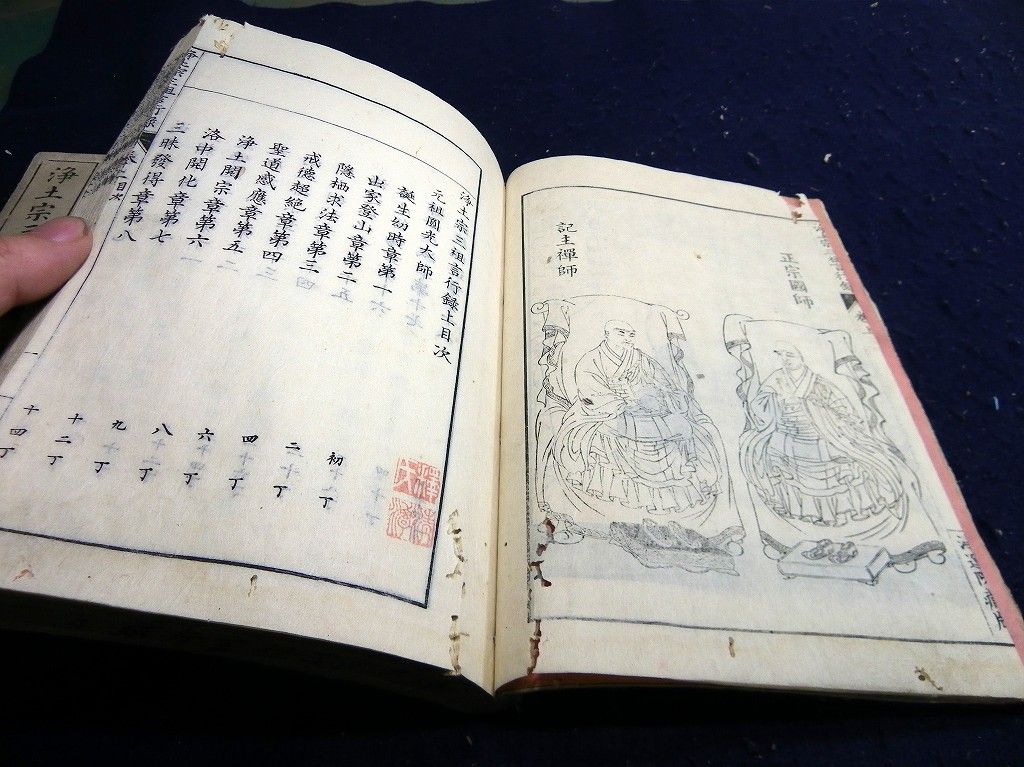 正宗國師
記主禪師
浄土宗三祖言行録上目次
元祖圓光大師
誕生幼時章第一
初丁
出家登山章第二
二丁
隱栖求法章第三
四丁
戒德超絶章第四
六丁
聖道感應章第五
八丁
浄土開宗章第六
九丁
洛中開化章第七
十二丁
三昧發得章第八
十四丁
浄土宗三